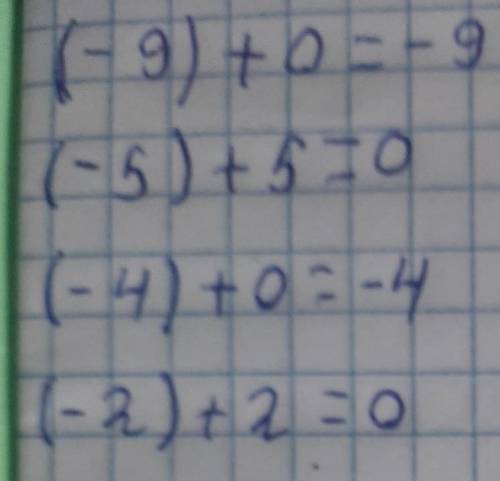 (-9)+0=-9
(-5)+5=0
(-4)+0=-4
(-2)+2=0